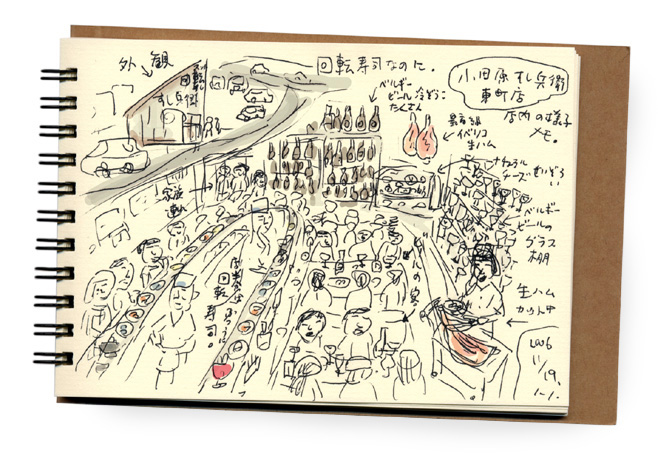 外観
回転
すし兵衛
回転寿司なのに、
ベルギー
ビール冷ぞうこ
たくさん
小田原すし兵衛
東町店
店内の様子
メモ。
イベリコ
生ハム
ナチュラル
チーズ
家族
連れ
ベルギー
ビールの
グラス
棚
生ハム
カット中
回転
寿司。
2006
11/19,